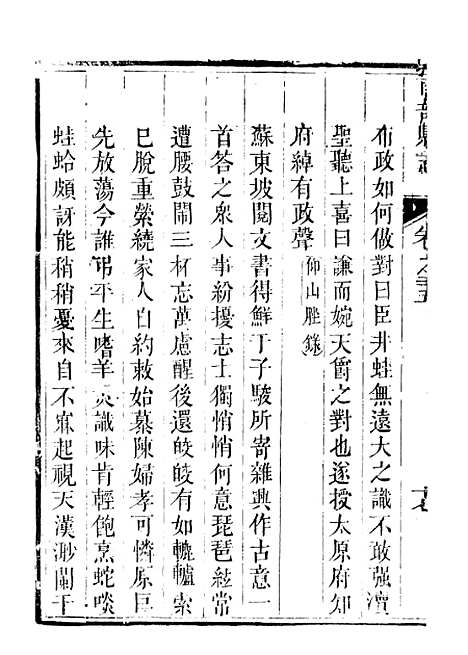 布政如何做對曰臣井蛙無遠大之識不敢強瀆
聖聽上喜曰謙而婉天爵之對也遂授太原府知
府綽有政聲仰山脞錄
蘇東坡閱文書得鮮于子駿所寄雜興作古意一
首答之衆人事紛擾志士獨悄悄何意琵琶絃常
遭腰鼓鬧三杯忘萬慮醒後還皎皎有如轆轤索
已脫重縈繞家人自約敕始慕陳婦孝可憐原巨
先放蕩今誰弔平生嗜羊炙識味肯輕飽烹蛇啖
蛙蛤頗訝能稍稍憂來自不寐起視天漢渺闌干
縣志
卷之